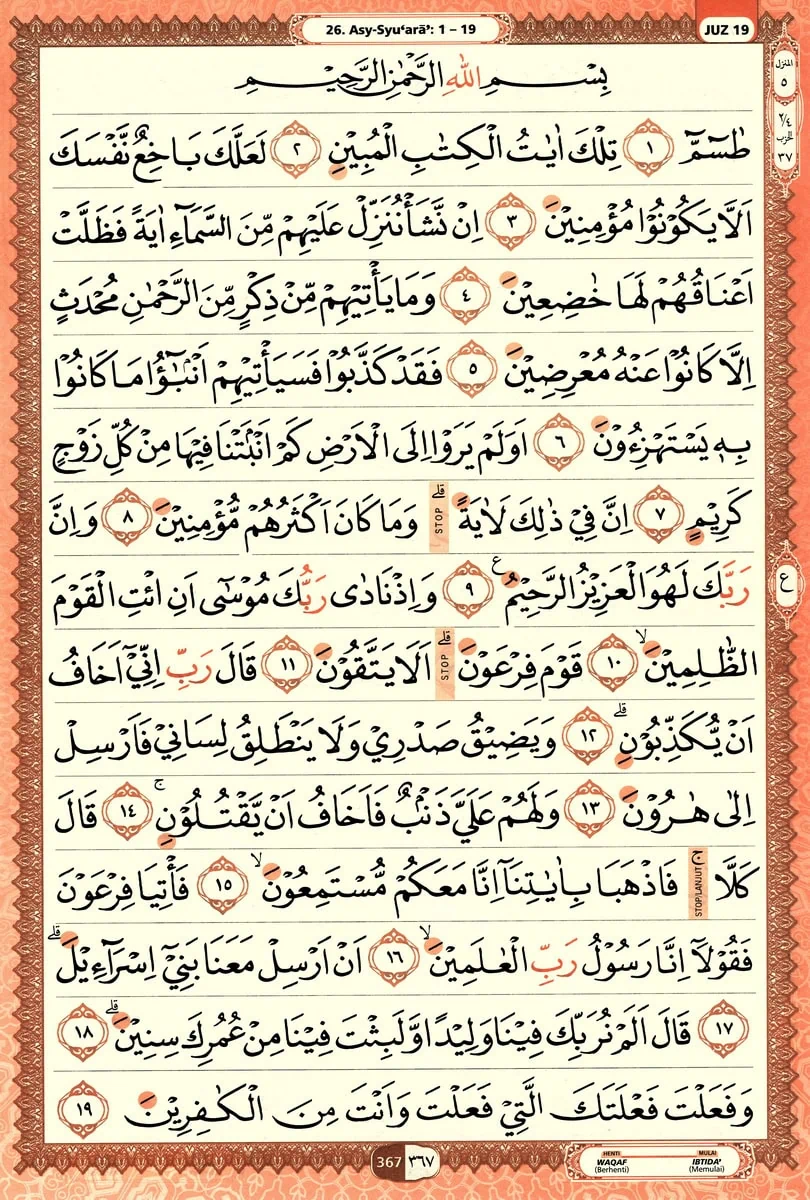 26. Asy-Syu‘arā’: 1 – 19
JUZ 19
المنزل
٥
٢/٤
الحزب
٣٧
بِسْمِ اللّٰهِ الرَّحْمٰنِ الرَّحِيْمِ
طٰسۤمّۤ ١ تِلْكَ اٰيٰتُ الْكِتٰبِ الْمُبِيْنِ ٢ لَعَلَّكَ بَاخِعٌ نَّفْسَكَ
اَلَّا يَكُوْنُوْا مُؤْمِنِيْنَ ٣ اِنْ نَّشَأْ نُنَزِّلْ عَلَيْهِمْ مِّنَ السَّمَاۤءِ اٰيَةً فَظَلَّتْ
اَعْنَاقُهُمْ لَهَا خٰضِعِيْنَ ٤ وَمَا يَأْتِيْهِمْ مِّنْ ذِكْرٍ مِّنَ الرَّحْمٰنِ مُحْدَثٍ
اِلَّا كَانُوْا عَنْهُ مُعْرِضِيْنَ ٥ فَقَدْ كَذَّبُوْا فَسَيَأْتِيْهِمْ اَنْۢبٰۤؤُا مَا كَانُوْا
بِهٖ يَسْتَهْزِءُوْنَ ٦ اَوَلَمْ يَرَوْا اِلَى الْاَرْضِ كَمْ اَنْۢبَتْنَا فِيْهَا مِنْ كُلِّ زَوْجٍ
كَرِيْمٍ ٧ اِنَّ فِيْ ذٰلِكَ لَاٰيَةً ۗ STOP وَمَا كَانَ اَكْثَرُهُمْ مُّؤْمِنِيْنَ ٨ وَاِنَّ
رَبَّكَ لَهُوَ الْعَزِيْزُ الرَّحِيْمُ ࣖ ٩ وَاِذْ نَادٰى رَبُّكَ مُوْسٰٓى اَنِ ائْتِ الْقَوْمَ
ع
الظّٰلِمِيْنَ ۙ ١٠ قَوْمَ فِرْعَوْنَ ۗ STOP اَلَا يَتَّقُوْنَ ١١ قَالَ رَبِّ اِنِّيْٓ اَخَافُ
اَنْ يُّكَذِّبُوْنِ ۗ ١٢ وَيَضِيْقُ صَدْرِيْ وَلَا يَنْطَلِقُ لِسَانِيْ فَاَرْسِلْ
اِلٰى هٰرُوْنَ ١٣ وَلَهُمْ عَلَيَّ ذَنْۢبٌ فَاَخَافُ اَنْ يَّقْتُلُوْنِ ۚ ١٤ قَالَ
كَلَّا ۚ STOP/LANJUT فَاذْهَبَا بِاٰيٰتِنَآ اِنَّا مَعَكُمْ مُّسْتَمِعُوْنَ ۙ ١٥ فَأْتِيَا فِرْعَوْنَ
فَقُوْلَآ اِنَّا رَسُوْلُ رَبِّ الْعٰلَمِيْنَ ۙ ١٦ اَنْ اَرْسِلْ مَعَنَا بَنِيْٓ اِسْرَاۤءِيْلَ ۗ
١٧ قَالَ اَلَمْ نُرَبِّكَ فِيْنَا وَلِيْدًا وَّلَبِثْتَ فِيْنَا مِنْ عُمُرِكَ سِنِيْنَ ۗ ١٨
وَفَعَلْتَ فَعْلَتَكَ الَّتِيْ فَعَلْتَ وَاَنْتَ مِنَ الْكٰفِرِيْنَ ١٩
367 ٣٦٧
HENTI
WAQAF
(Berhenti)
MULAI
IBTIDA’
(Memulai)